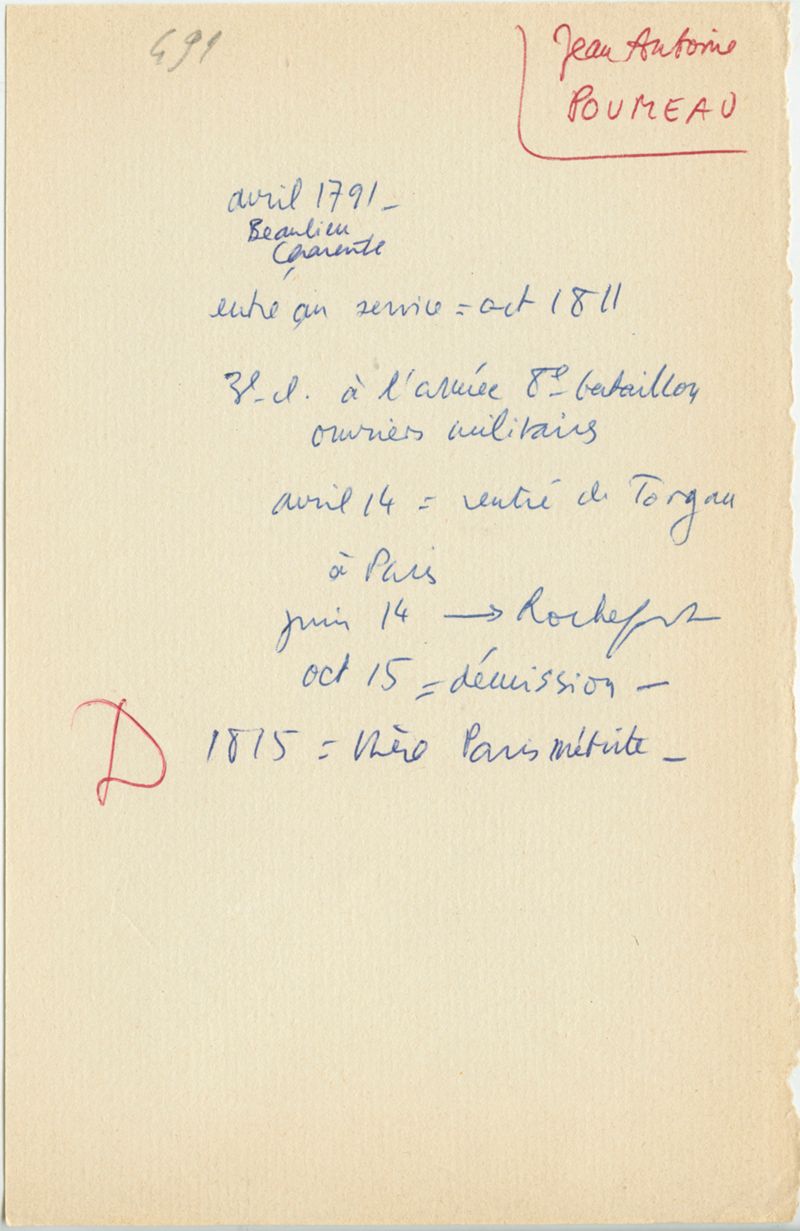 491
Jean Antoine
POUMEAU
avril 1791 –
Beaulieu
Charente
entré au service = oct 1811
3e cl. à l'armée 8e bataillon
ouvriers militaires
avril 14 = rentré de Torgau
à Paris
juin 14 → Rochefort
oct 15 = démission –
D
1815 = thèse Paris métrite –